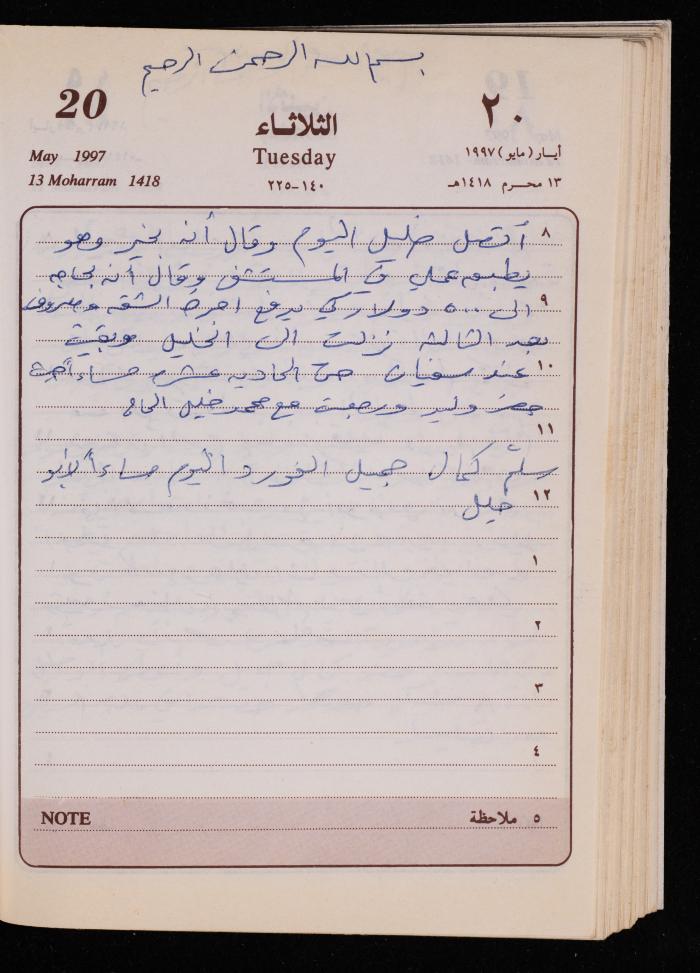 بسم الله الرحمن الرحيم
20 الثلاثاء ٢٠
May 1997 Tuesday أيار (مايو) ١٩٩٧
13 Moharram 1418 ١٤٠-٢٢٥ ١٣ محرم ١٤١٨هـ
٨ أتصل خليل اليوم وقال أنه بخير وهو
يطبق عملي في المستشفى وقال أنه بحاجه
٩ الى ٥٠٠٠ دولار كي يدفع اجرة الشقه ومصروف
بعد الثالثة نزلت الى الخليل وبقيت
١٠ عند سفيان حتى الحاديه عشرة مساءاً
حضر وليد ورجعت مع محمد خليل الحاج
١١
سلّم كمال جميل اليوم مساءاً لأبو
١٢ خليل
١
٢
٣
٤
NOTE ٥ ملاحظة